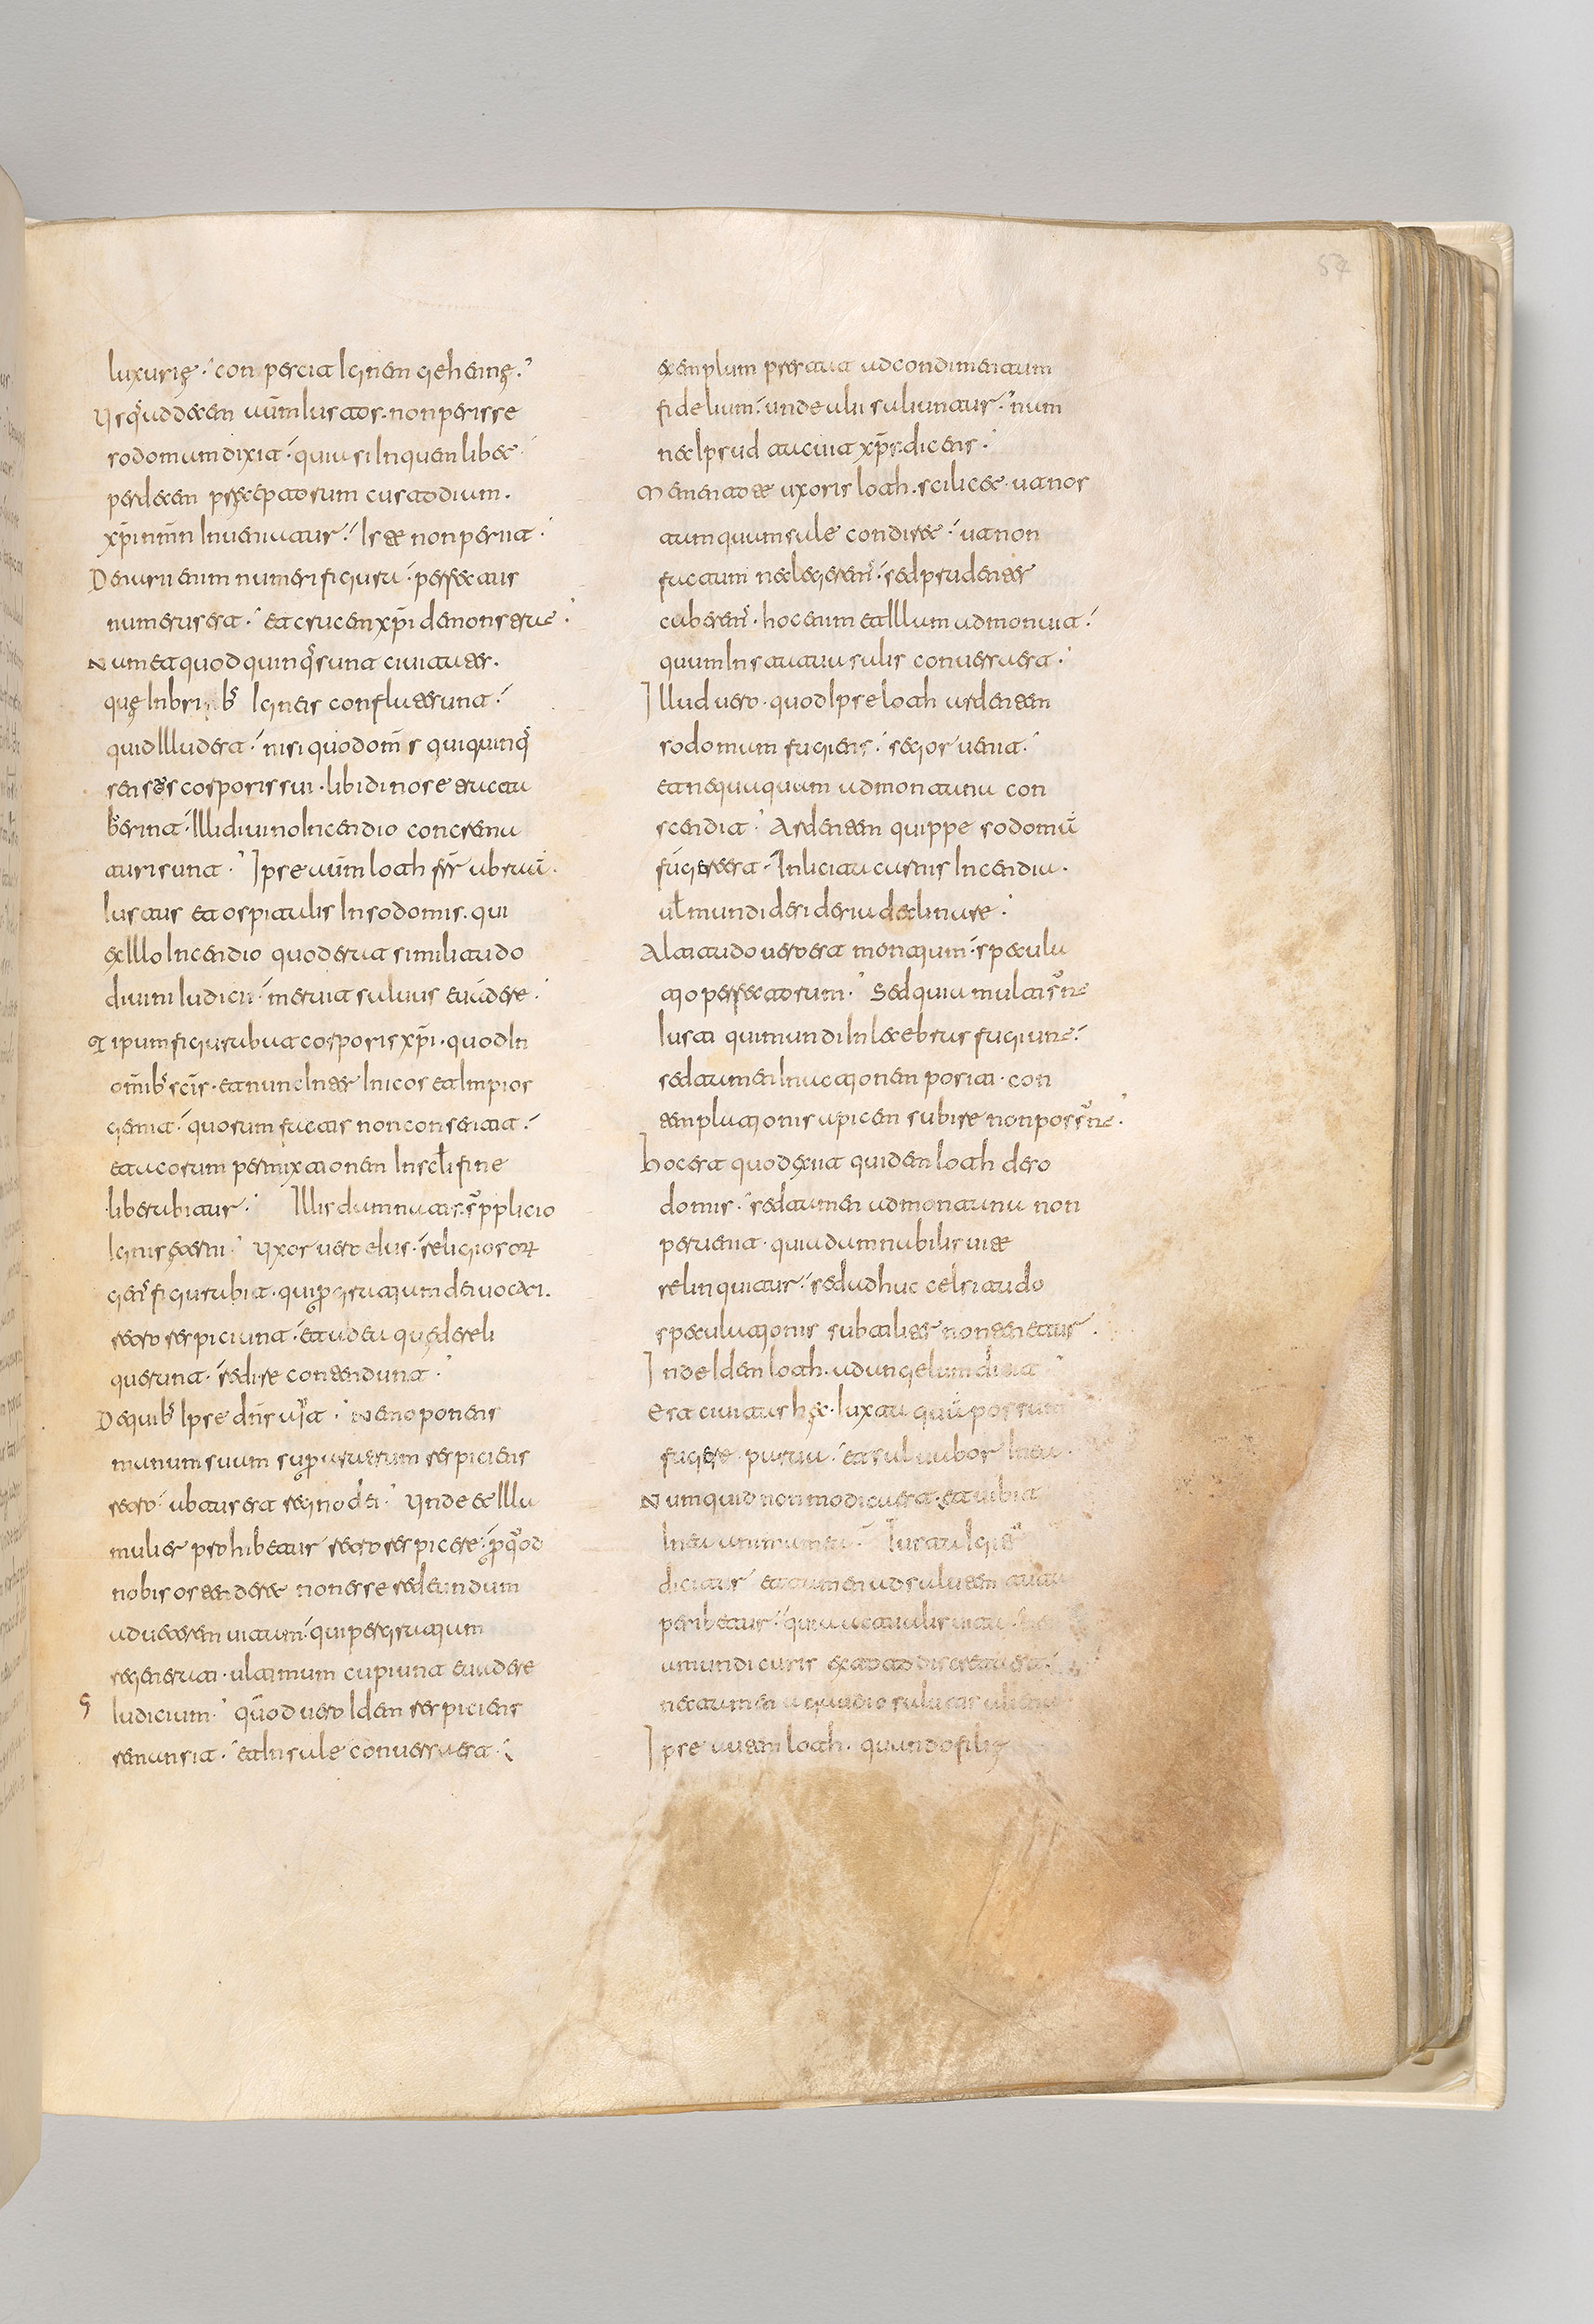 57
luxurię. conpescit ignem gehennę.
Usq̄ ad decem autem iustos. non perisse
sodomam dixit. quia si in quemlibet
per decem preceptorum custodiam.
xp̄i nm̄n inueniatur. iste non perit.
Denarii enim numeri figura. perfectus
numerus est. et crucem xp̄i demonstrat.
Nam et quod quinq̄ sunt ciuitates.
quę igneis conflagrerunt.
quid illud est. nisi quod om̄s qui quinq̄
sensos corporis sui. libidinose tracta
berint. illi diuino incendio concrema
turi sunt. Ipse autem loth frater abraam.
iustus et ospitalis in sodomis. qui
ex illo incendio quod erat similitudo
diuini iudicii. meruit saluus euadere.
Tipum figurabat corporis xp̄i. quod in
om̄ib; sc̄is. et nunc inter inicos et impios
gemit. quorum factis non consentit.
et a corum permixtione in scl̄i fine
liberabitur. Illis damnatis supplicio
ignis ęterni. Uxor uero eius. religiosorum
genus figurabit. qui per gratiam dei uocati.
retro respiciunt. et ad ea quę dereli
querunt. redire contendunt.
De quib; ipse dn̄s ait. Nemo ponens
manum suam super aratrum respiciens
retro. abtus est regno dei. Unde et illa
mulier prohibetur retro respicere. per quod
nobis ostenderet non esse redeundum
ad ueterem uitam. qui per gratiam
regenerati. ultimum cupiunt euadere
iudicium. quod uero idem respiciens
remansit. et in sale conuersa est.
exemplum prestat ad condimentum
fidelium. unde alii saliuntur. nam
nec ipsud tacuit xp̄s. dicens.
Mementote uxoris loth. scilicet. ut nos
tamquam sale condiret. ut non
fatum neclegeremus. sed prudenter
caberemus. hoc enim et illum admonuit.
quum in statua salis conuersa est.
Illud uero. quod ipse loth ardentem
sodomam fugiens. segor uenit.
et nequaquam ad montana con
scendit. Ardentem quippe sodomā
fugere est. inlicita carnis incendia.
uel mundi desideria declinare.
Altitudo uero est montium. specula
tio perfectorum. Sed quia multi sunt
iusti qui mundi inlecebras fugiunt.
sed tamen in actionem positi. con
templationis apicem subire non possunt.
hoc est quod exiit quidem loth de so
domis. sed tamen ad montana non
peruenit. quia damnabilis uite
relinquitur. sed adhuc celsitudo
speculationis subtiliter non tenetur.
Inde idem loth. ad angelum dicit
Est ciuitas hec. iuxta qua possum
fugere. parua. et saluabor in ea.
Numquid non modica est. et uibit
in ea anima mea. Iuxta igitur
dicitur et tamen ad salutem tuta
peribetur. quia actualis uita. nec
a mundi curis ex toto discreta est.
nec tamen a gaudio salutis aliena
Ipse autem loth. quando filię
ς